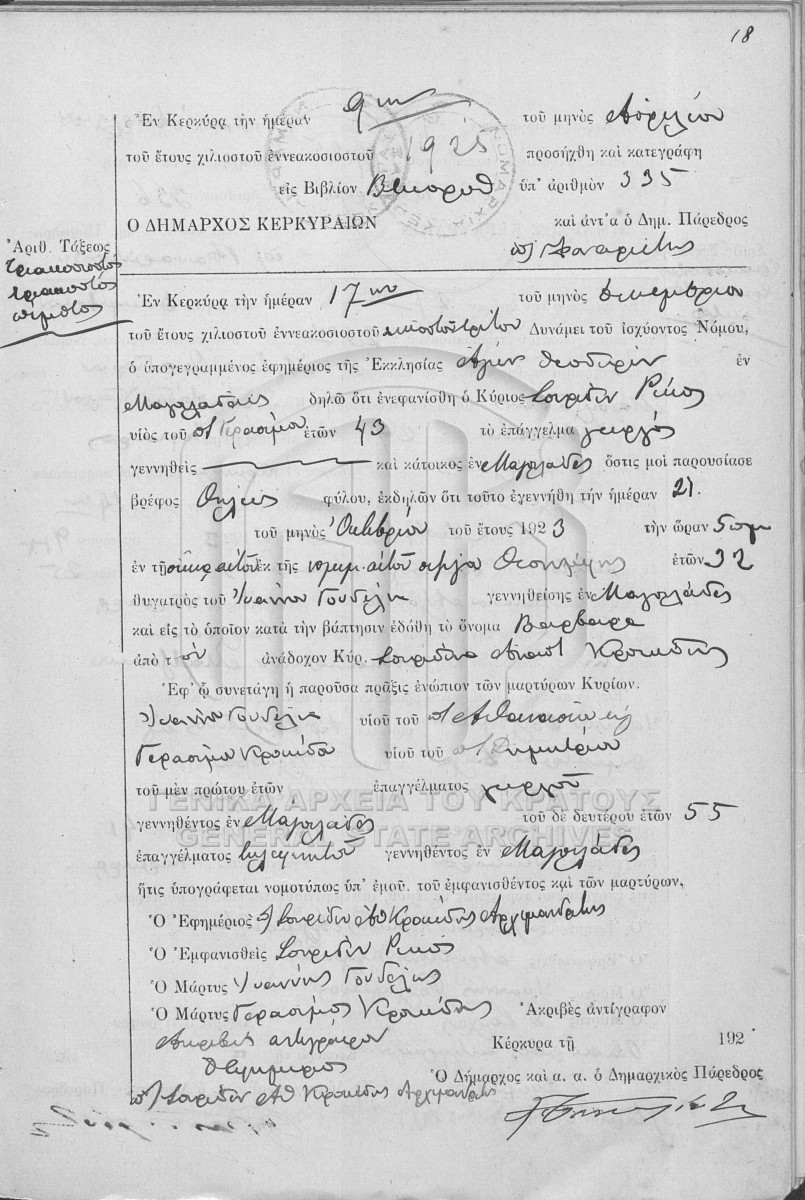 18
Ἐν Κερκύρᾳ τὴν ἡμέραν 9ην τοῦ μηνὸς Ἀπριλίου
τοῦ ἔτους χιλιοστοῦ ἐννεακοσιοστοῦ 1925 προσήχθη καὶ κατεγράφη
εἰς Βιβλίον ὑπ' ἀριθμὸν 335
Ο ΔΗΜΑΡΧΟΣ ΚΕΡΚΥΡΑΙΩΝ καὶ ἀντ'α ὁ Δημ. Πάρεδρος
Ἀριθ. Τάξεως
τριακοσιοστός
τριακοστός
πέμπτος
Ἐν Κερκύρᾳ τὴν ἡμέραν 17ην τοῦ μηνὸς Δεκεμβρίου
τοῦ ἔτους χιλιοστοῦ ἐννεακοσιοστοῦ εἰκοστοῦ τρίτου Δυνάμει τοῦ ἰσχύοντος Νόμου,
ὁ ὑπογεγραμμένος ἐφημέριος τῆς Ἐκκλησίας Ἁγίων Θεοδώρων ἐν
Μαγουλάδαις δηλῶ ὅτι ἐνεφανίσθη ὁ Κύριος Σπυρίδων Ρίκος
υἱὸς τοῦ π/ Γερασίμου ἐτῶν 43 τὸ ἐπάγγελμα γεωργός
γεννηθεὶς καὶ κάτοικος ἐν Μαγουλάδες ὅστις μοὶ παρουσίασε
βρέφος Θήλεος φύλου, ἐκδηλῶν ὅτι τοῦτο ἐγεννήθη τὴν ἡμέραν 21
τοῦ μηνὸς Ὀκτωβρίου τοῦ ἔτους 1923 τὴν ὥραν 5 πμ
ἐν τῇ οἰκίᾳ αὐτοῦ ἐκ τῆς νομίμ. αὐτοῦ συζύγου ἐτῶν 32
θυγατρὸς τοῦ Ἰωάννου Γουδέλη γεννηθείσης ἐν Μαγουλάδες
καὶ εἰς τὸ ὁποῖον κατὰ τὴν βάπτισιν ἐδόθη τὸ ὄνομα Βαρβάρα
ἀπὸ τὸν ἀνάδοχον Κύρ. Σπυρίδωνα Κροκίδης
Ἐφ' ᾧ συνετάγη ἡ παροῦσα πρᾶξις ἐνώπιον τῶν μαρτύρων Κυρίων.
Ἰωάννου Γουδέλη υἱοῦ τοῦ π/ Ἀθανασίου
Γερασίμου Κροκίδα υἱοῦ τοῦ π/ Δημητρίου
τοῦ μὲν πρώτου ἐτῶν ἐπαγγέλματος γεωργοῦ
γεννηθέντος ἐν Μαγουλάδες τοῦ δὲ δευτέρου ἐτῶν 55
ἐπαγγέλματος γεννηθέντος ἐν Μαγουλάδες
ἥτις ὑπογράφεται νομοτύπως ὑπ' ἐμοῦ, τοῦ ἐμφανισθέντος καὶ τῶν μαρτύρων.
Ὁ Ἐφημέριος Σπυρίδων Αθ Κροκίδης Ἀρχιμανδρίτης
Ὁ Ἐμφανισθεὶς Σπυρίδων Ρίκος
Ὁ Μάρτυς Ἰωάννης Γουδέλης
Ὁ Μάρτυς Γεράσιμος Κροκίδης Ἀκριβὲς ἀντίγραφον
Ἀκριβὲς ἀντίγραφον Κέρκυρα τῇ 192
Ὁ Ἐφημέριος Ὁ Δήμαρχος καὶ α. α. ὁ Δημαρχικὸς Πάρεδρος
Σπυρίδων Αθ Κροκίδης Ἀρχιμανδρίτης
ΓΕΝΙΚΑ ΑΡΧΕΙΑ ΤΟΥ ΚΡΑΤΟΥΣ
GENERAL STATE ARCHIVES